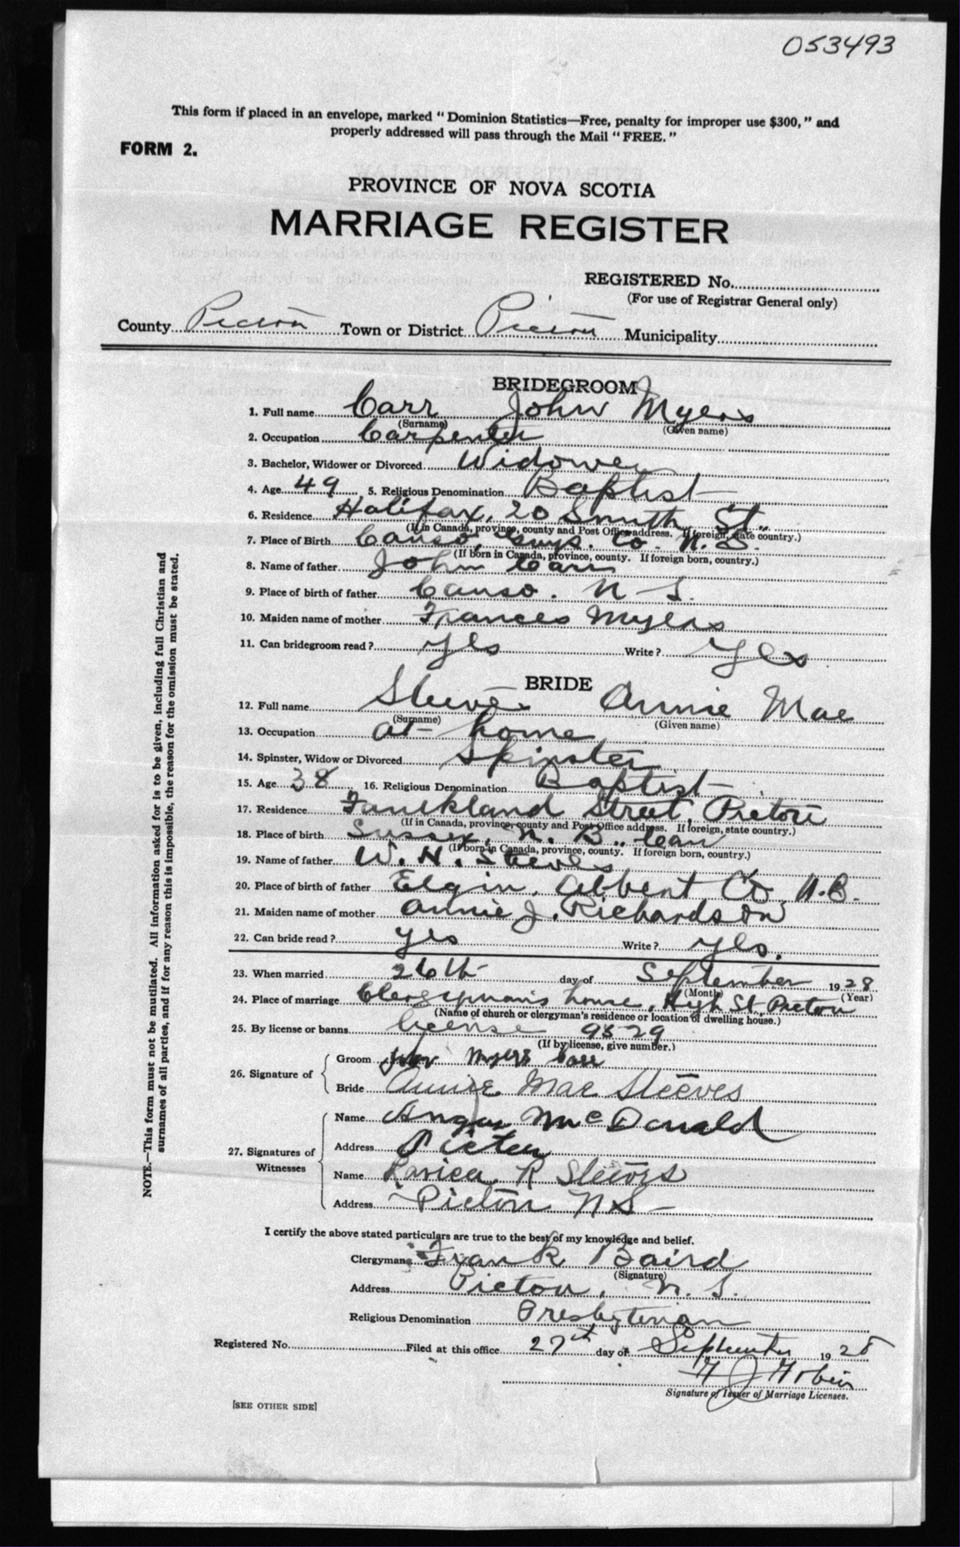 053493
This form if placed in an envelope, marked "Dominion Statistics—Free, penalty for improper use $300," and
properly addressed will pass through the Mail "FREE."
FORM 2.
PROVINCE OF NOVA SCOTIA
MARRIAGE REGISTER
REGISTERED No.
(For use of Registrar General only)
County Pictou Town or District Pictou Municipality
BRIDEGROOM
1. Full name Carr John Myers
(Surname) (Given name)
2. Occupation Carpenter
3. Bachelor, Widower or Divorced Widower
4. Age 49 5. Religious Denomination Baptist
6. Residence Halifax, 20 Smith St.
(If in Canada, province, county and Post Office address. If foreign, state country.)
7. Place of Birth Canso, Guys. Co. N. S.
(If born in Canada, province, county. If foreign born, country.)
8. Name of father John Carr
9. Place of birth of father Canso. N S.
10. Maiden name of mother Frances Myers
11. Can bridegroom read? Yes Write? Yes
BRIDE
12. Full name Steeves Annie Mae
(Surname) (Given name)
13. Occupation at home
14. Spinster, Widow or Divorced Spinster
15. Age 38 16. Religious Denomination Baptist
17. Residence Faulkland Street, Pictou
(If in Canada, province, county and Post Office address. If foreign, state country.)
18. Place of birth Sussex, N. B.,
(If born in Canada, province, county. If foreign born, country.)
19. Name of father W. H. Steeves
20. Place of birth of father Elgin, Albert Co, N.B.
21. Maiden name of mother Annie J. Richardson
22. Can bride read? yes Write? yes.
23. When married 26th day of September 1928
(Month) (Year)
24. Place of marriage Clergyman's house, High St, Pictou
(Name of church or clergyman's residence or location of dwelling house.)
25. By license or banns license 9829
(If by license, give number.)
26. Signature of
Groom John Myers Carr
Bride Annie Mae Steeves
27. Signatures of Witnesses
Name Angus McDonald
Address Pictou
Name R Steeves
Address Pictou NS
I certify the above stated particulars are true to the best of my knowledge and belief.
Clergyman Frank Baird
(Signature)
Address Pictou, N. S.
Religious Denomination Presbyterian
Registered No. Filed at this office 27th day of September 1928
Signature of Issuer of Marriage Licenses.
[SEE OTHER SIDE]
NOTE.—This form must not be mutilated. All information asked for is to be given, including full Christian and
surnames of all parties, and if for any reason this is impossible, the reason for the omission must be stated.